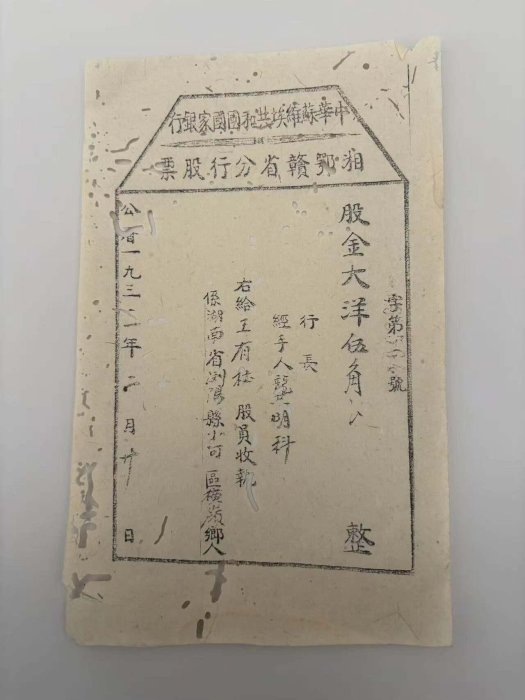 中華蘇維埃共和國國家銀行
湘鄂贛省分行股票
字第 號
股金大洋伍角 整
行長
經手人龔明科
右給王有桂 股員收執
係湖南省瀏陽縣小河區橫嶺鄉人
公曆一九三 年二月廿日